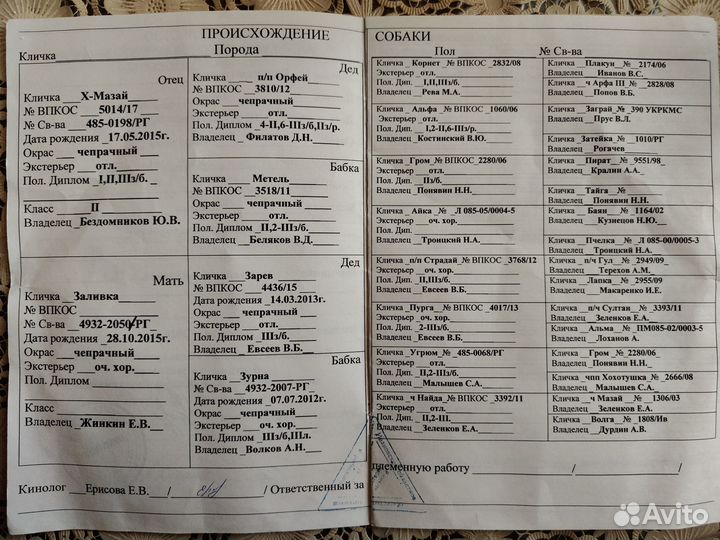 ПРОИСХОЖДЕНИЕ
Кличка Порода
Отец
Кличка Х-Мазай
№ ВПКОС 5014/17
№ Св-ва 485-0198/РГ
Дата рождения 17.05.2015г.
Окрас чепрачный
Экстерьер отл.
Пол. Диплом I,II,IIIз/б.
Класс II
Владелец Бездомников Ю.В.
Мать
Кличка Заливка
№ ВПКОС
№ Св-ва 4932-2050/РГ
Дата рождения 28.10.2015г.
Окрас чепрачный
Экстерьер оч. хор.
Пол. Диплом
Класс
Владелец Жинкин Е.В.
Дед
Кличка п/п Орфей
№ ВПКОС 3810/12
Окрас чепрачный
Экстерьер отл.
Пол. Диплом 4-II,6-IIIз/б,IIз/р.
Владелец Филатов Д.Н.
Бабка
Кличка Метель
№ ВПКОС 3518/11
Окрас чепрачный
Экстерьер отл.
Пол. Диплом II,2-IIIз/б.
Владелец Беляков В.Д.
Дед
Кличка Зарев
№ ВПКОС 4436/15
Дата рождения 14.03.2013г.
Окрас чепрачный
Экстерьер отл.
Пол. Диплом IIIз/б.
Владелец Евсеев В.Б.
Бабка
Кличка Зурна
№ Св-ва 4932-2007-РГ
Дата рождения 07.07.2012г.
Окрас чепрачный
Экстерьер оч. хор.
Пол. Диплом IIIз/б,IIIл.
Владелец Волков А.Н.
Кинолог Ерисова Е.В. / / Ответственный за
СОБАКИ
Пол № Св-ва
Кличка Корнет № ВПКОС 2832/08
Экстерьер отл.
Пол. Дип. I,II,IIIз/б.
Владелец Рева М.А.
Кличка Альфа № ВПКОС 1060/06
Экстерьер отл.
Пол. Дип. I,2-II,6-IIIз/б
Владелец Костинский В.Ю.
Кличка Гром № ВПКОС 2280/06
Экстерьер отл.
Пол. Дип. IIз/б.
Владелец Понявин Н.Н.
Кличка Айка № Л 085-05/0004-5
Экстерьер оч. хор.
Пол. Дип.
Владелец Троицкий Н.А.
Кличка п/п Страдай № ВПКОС 3768/12
Экстерьер оч. хор.
Пол. Дип. IIз/б.
Владелец Евсеев В.Б.
Кличка Пурга № ВПКОС 4017/13
Экстерьер оч. хор.
Пол. Дип. 2-IIIз/б.
Владелец Зеленков Е.А.
Кличка Угрюм № 485-0068/РГ
Экстерьер отл.
Пол. Дип. II,2-IIIз/б.
Владелец Малышев С.А.
Кличка ч Найда № ВПКОС 3392/11
Экстерьер отл.
Пол. Дип. II,2-III.
Владелец Зеленков Е.А.
Кличка Плакун № 2174/06
Владелец Иванов В.С.
Кличка ч Арфа III № 2828/08
Владелец Попов В.Б.
Кличка Заграй № 390 УКРКМС
Владелец Прус В.Л.
Кличка Затейка № 1010/РГ
Владелец Рогачев
Кличка Пират № 9551/98
Владелец Кралин А.А.
Кличка Тайга №
Владелец Понявин Н.Н.
Кличка Баян № 1164/02
Владелец Кузнецов Н.Ю.
Кличка Пчелка № Л 085-00/0005-3
Владелец Троицкий Н.А.
Кличка п/ч Гул № 2949/09
Владелец Терехов А.М.
Кличка Лапка № 2955/09
Владелец Макаренко И.Е.
Кличка п/ч Султан № 3393/11
Владелец Зеленков Е.А.
Кличка Альма № ПМ085-02/0003-5
Владелец Лоханов А.
Кличка Гром № 2280/06
Владелец Понявин Н.Н.
Кличка чпп Хохотушка № 2666/08
Владелец Малышев С.А.
Кличка ч Мазай № 1306/03
Владелец Зеленков Е.А.
Кличка Волга № 1808/Ив
Владелец Дурдин А.В.
племенную работу / /
Avito